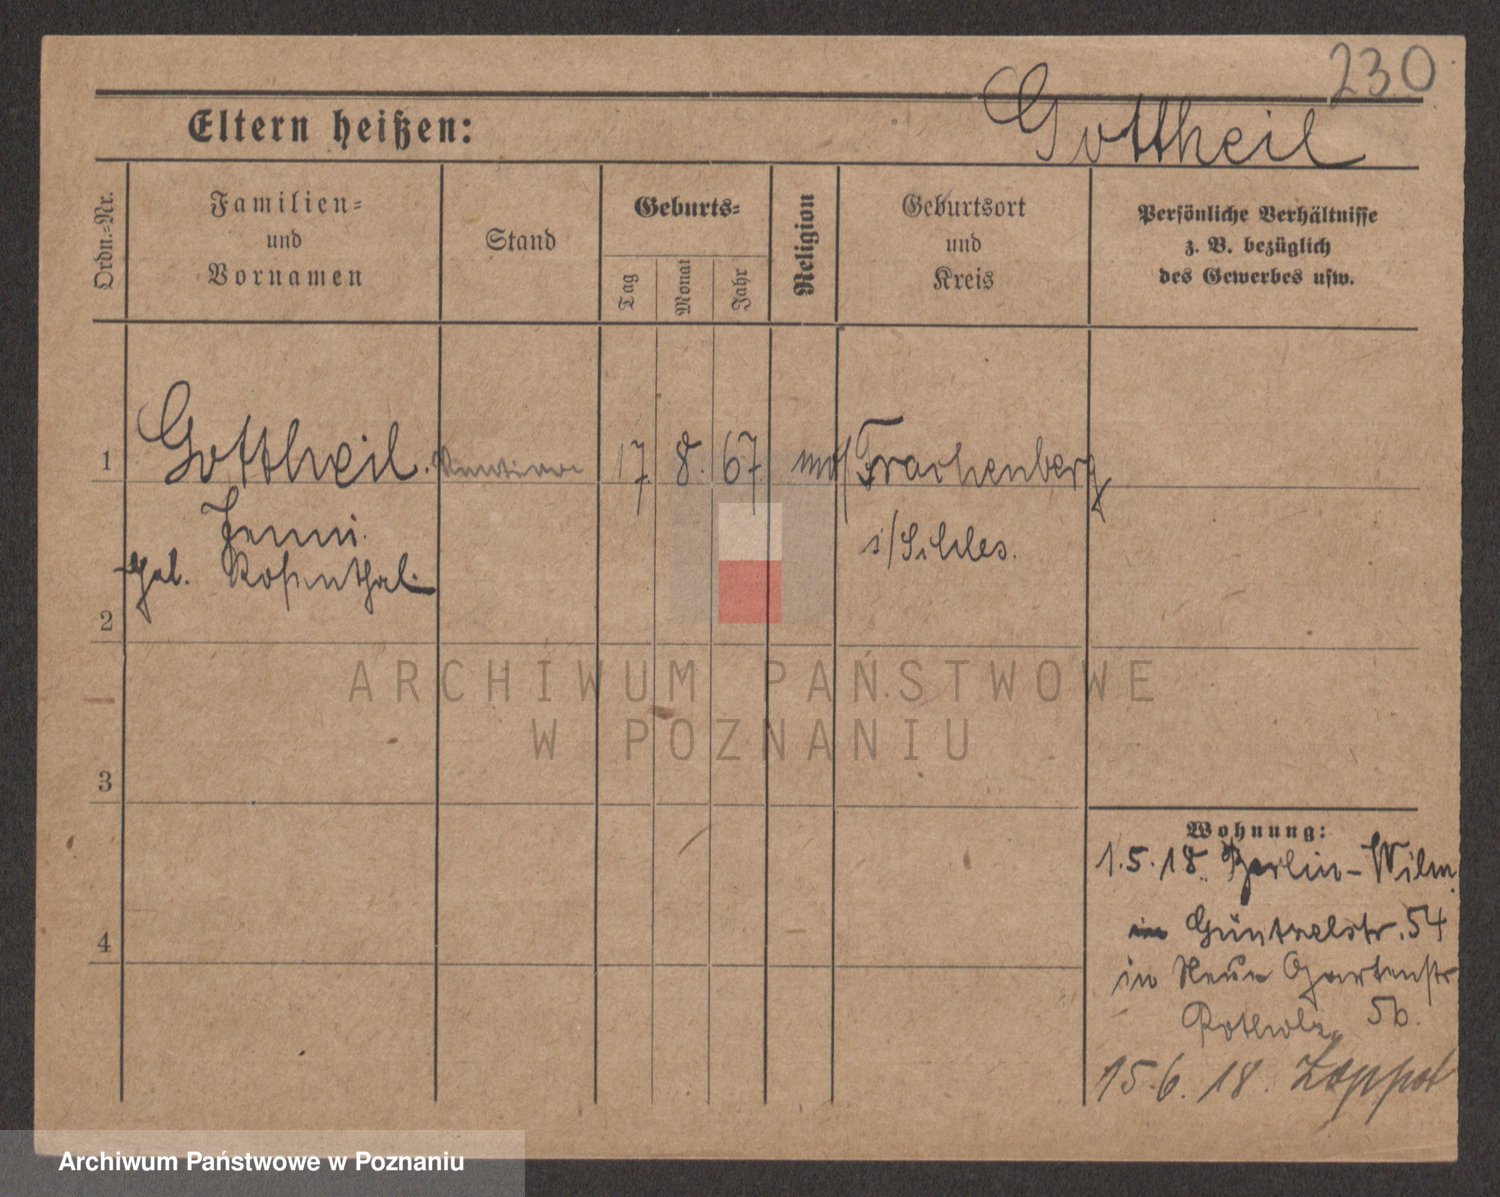 230
Gottheil
Eltern heißen:
Ordn.-Nr.
Familien-
und
Vornamen
Stand
Geburts-
Tag
Monat
Jahr
Religion
Geburtsort
und
Kreis
Persönliche Verhältnisse
z. B. bezüglich
des Gewerbes usw.
1 Gottheil. 17. 8. 67. mos Trachenberg
Jenni.
i/Schles.
geb. Rosenthal.
2
ARCHIWUM PAŃSTWOWE
W POZNANIU
3
Wohnung:
1.5.18. Berlin-Wilm.
Güntzelstr. 54
4
in Neue Gartenstr
56.
15.6.18. Zoppot
Archiwum Państwowe w Poznaniu